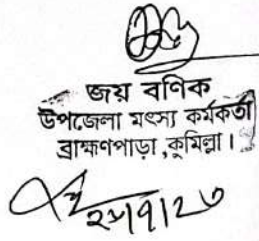 জয় বণিক
উপজেলা মৎস্য কর্মকর্তা
ব্রাহ্মণপাড়া, কুমিল্লা।
২৮/৭/২৩